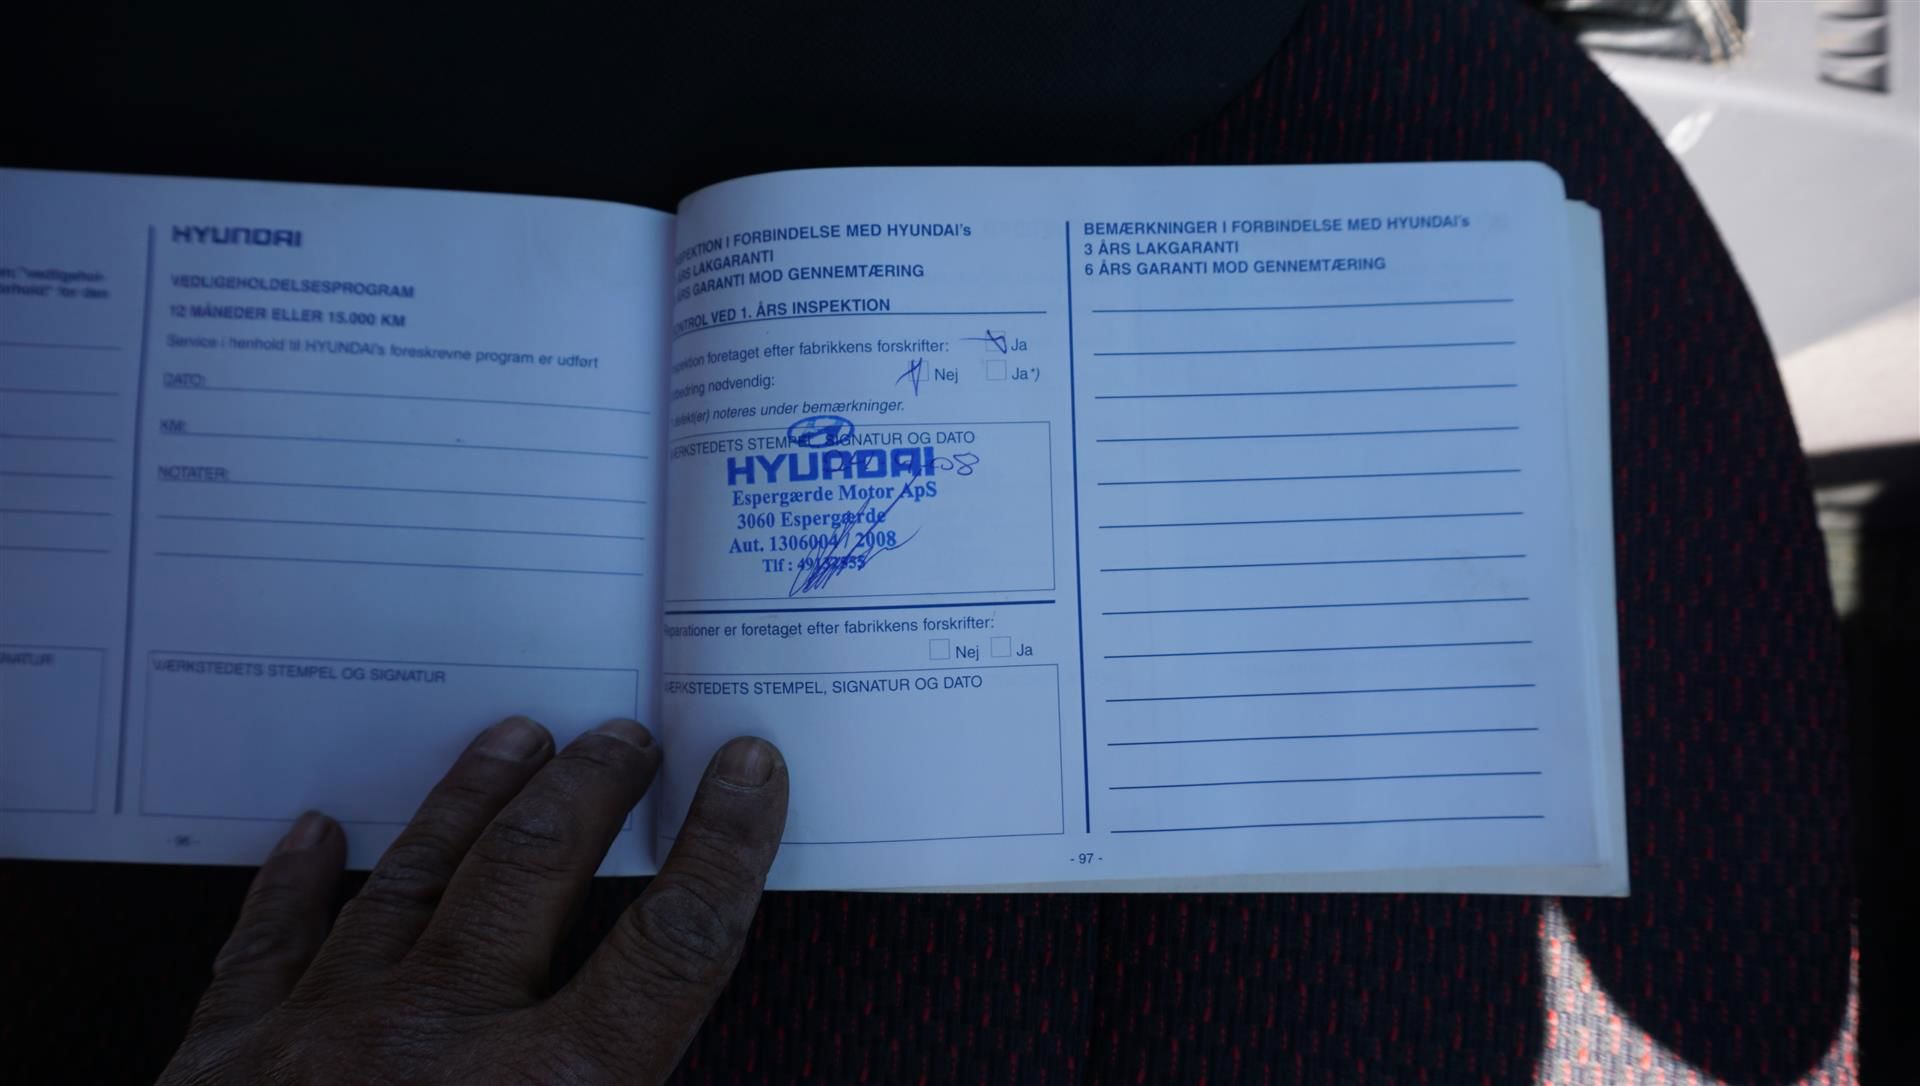 HYUNDAI
VEDLIGEHOLDELSESPROGRAM
12 MÅNEDER ELLER 15.000 KM
Service i henhold til HYUNDAI's foreskrevne program er udført
DATO:
KM:
NOTATER:
VÆRKSTEDETS STEMPEL OG SIGNATUR
- 96 -
I FORBINDELSE MED HYUNDAI's
LAKGARANTI
GARANTI MOD GENNEMTÆRING
VED 1. ÅRS INSPEKTION
foretaget efter fabrikkens forskrifter: Ja
nødvendig: Nej Ja*)
noteres under bemærkninger.
VÆRKSTEDETS STEMPEL, SIGNATUR OG DATO
HYUNDAI
Espergærde Motor ApS
3060 Espergærde
Aut. 1306004 / 2008
Tlf :
Reparationer er foretaget efter fabrikkens forskrifter:
Nej Ja
VÆRKSTEDETS STEMPEL, SIGNATUR OG DATO
BEMÆRKNINGER I FORBINDELSE MED HYUNDAI's
3 ÅRS LAKGARANTI
6 ÅRS GARANTI MOD GENNEMTÆRING
- 97 -